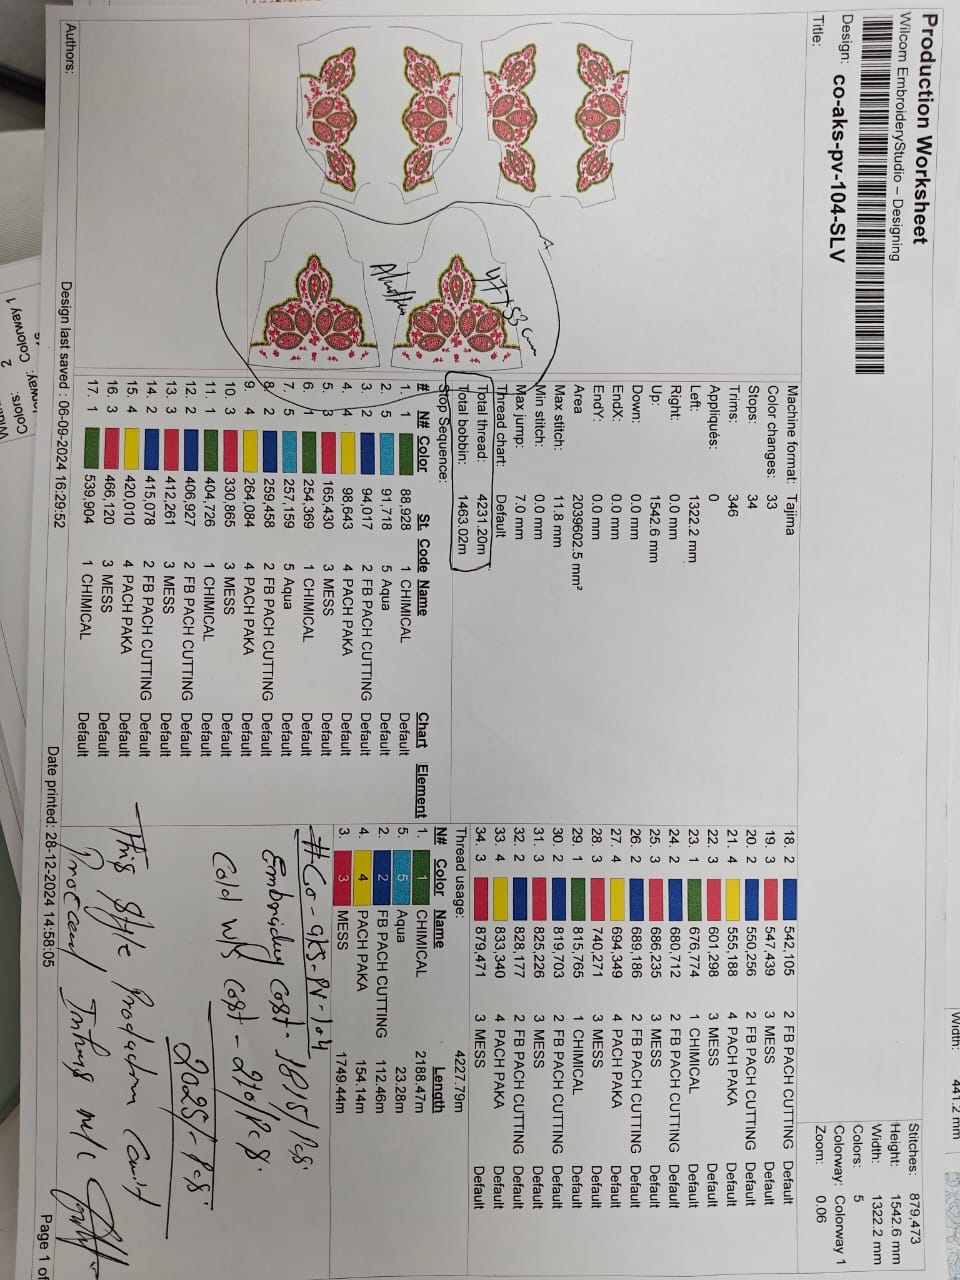 Production Worksheet
Wilcom EmbroideryStudio – Designing
Design: co-aks-pv-104-SLV
Title:
Stitches: 879,473
Height: 1542.6 mm
Width: 1322.2 mm
Colors: 5
Colorway: Colorway 1
Zoom: 0.06
Machine format: Tajima
Color changes: 33
Stops: 34
Trims: 346
Appliqués: 0
Left: 1322.2 mm
Right: 0.0 mm
Up: 1542.6 mm
Down: 0.0 mm
EndX: 0.0 mm
EndY: 0.0 mm
Area 2039602.5 mm²
Max stitch: 11.8 mm
Min stitch: 0.0 mm
Max jump: 7.0 mm
Thread chart: Default
Total thread: 4231.20m
Total bobbin: 1463.02m
Stop Sequence:
# N# Color St. Code Name Chart Element
1. 1 88,928 1 CHIMICAL Default
2. 5 91,718 5 Aqua Default
3. 2 94,017 2 FB PACH CUTTING Default
4. 4 98,643 4 PACH PAKA Default
5. 3 165,430 3 MESS Default
6. 1 254,369 1 CHIMICAL Default
7. 5 257,159 5 Aqua Default
8. 2 259,458 2 FB PACH CUTTING Default
9. 4 264,084 4 PACH PAKA Default
10. 3 330,865 3 MESS Default
11. 1 404,726 1 CHIMICAL Default
12. 2 406,927 2 FB PACH CUTTING Default
13. 3 412,261 3 MESS Default
14. 2 415,078 2 FB PACH CUTTING Default
15. 4 420,010 4 PACH PAKA Default
16. 3 466,120 3 MESS Default
17. 1 539,904 1 CHIMICAL Default
18. 2 542,105 2 FB PACH CUTTING Default
19. 3 547,439 3 MESS Default
20. 2 550,256 2 FB PACH CUTTING Default
21. 4 555,188 4 PACH PAKA Default
22. 3 601,298 3 MESS Default
23. 1 676,774 1 CHIMICAL Default
24. 2 680,712 2 FB PACH CUTTING Default
25. 3 686,235 3 MESS Default
26. 2 689,186 2 FB PACH CUTTING Default
27. 4 694,349 4 PACH PAKA Default
28. 3 740,271 3 MESS Default
29. 1 815,765 1 CHIMICAL Default
30. 2 819,703 2 FB PACH CUTTING Default
31. 3 825,226 3 MESS Default
32. 2 828,177 2 FB PACH CUTTING Default
33. 4 833,340 4 PACH PAKA Default
34. 3 879,471 3 MESS Default
Thread usage: 4227.79m
N# Color Name Length
1. 1 CHIMICAL 2188.47m
5. 5 Aqua 23.28m
2. 2 FB PACH CUTTING 112.46m
4. 4 PACH PAKA 154.14m
3. 3 MESS 1749.44m
# Co-aks-PV-104
Embroidery cost- 1815/Pcs.
Cold W/s cost- 210/Pcs.
2025/- Pcs
This style Production Cant
Procceny Inthus m/c
Authors:
Design last saved : 06-09-2024 16:29:52
Date printed: 28-12-2024 14:58:05
Page 1 of
Width: 441.2 mm
Colorway 1
2
Colors: